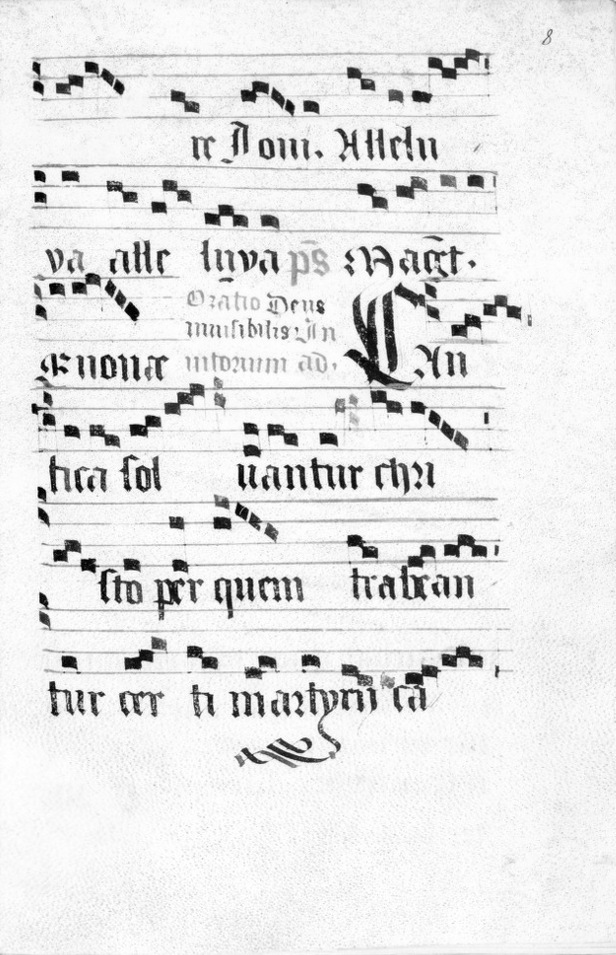 8
re Dom. Allelu
ya alle luya ps̄ Magt.
Oratio Deus
inuisibilis
Æuouæ ad. CAn
tica sol uantur chri
sto per quem trabean
tur cer ti martyrū ca